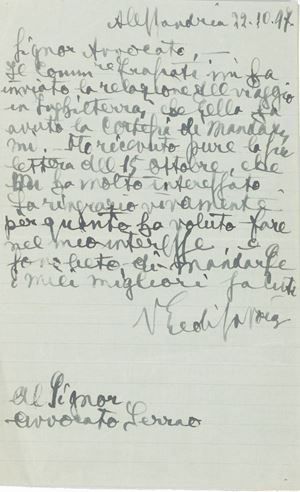 Alessandria 22.10.47
Signor Avvocato,
Il Comm re Grafati mi ha
inviato la relazione del viaggio
in Inghilterra, che Ella ha
avuto la cortesia di mandar
mi. Ho ricevuto pure la sua
lettera del 15 ottobre, che
mi ha molto interessato
La ringrazio vivamente
per quanto ha voluto fare
nel mio interesse, e
sono lieto di mandarle
i miei migliori saluti
V Em di Savoia
Al Signor
avvocato Serrao